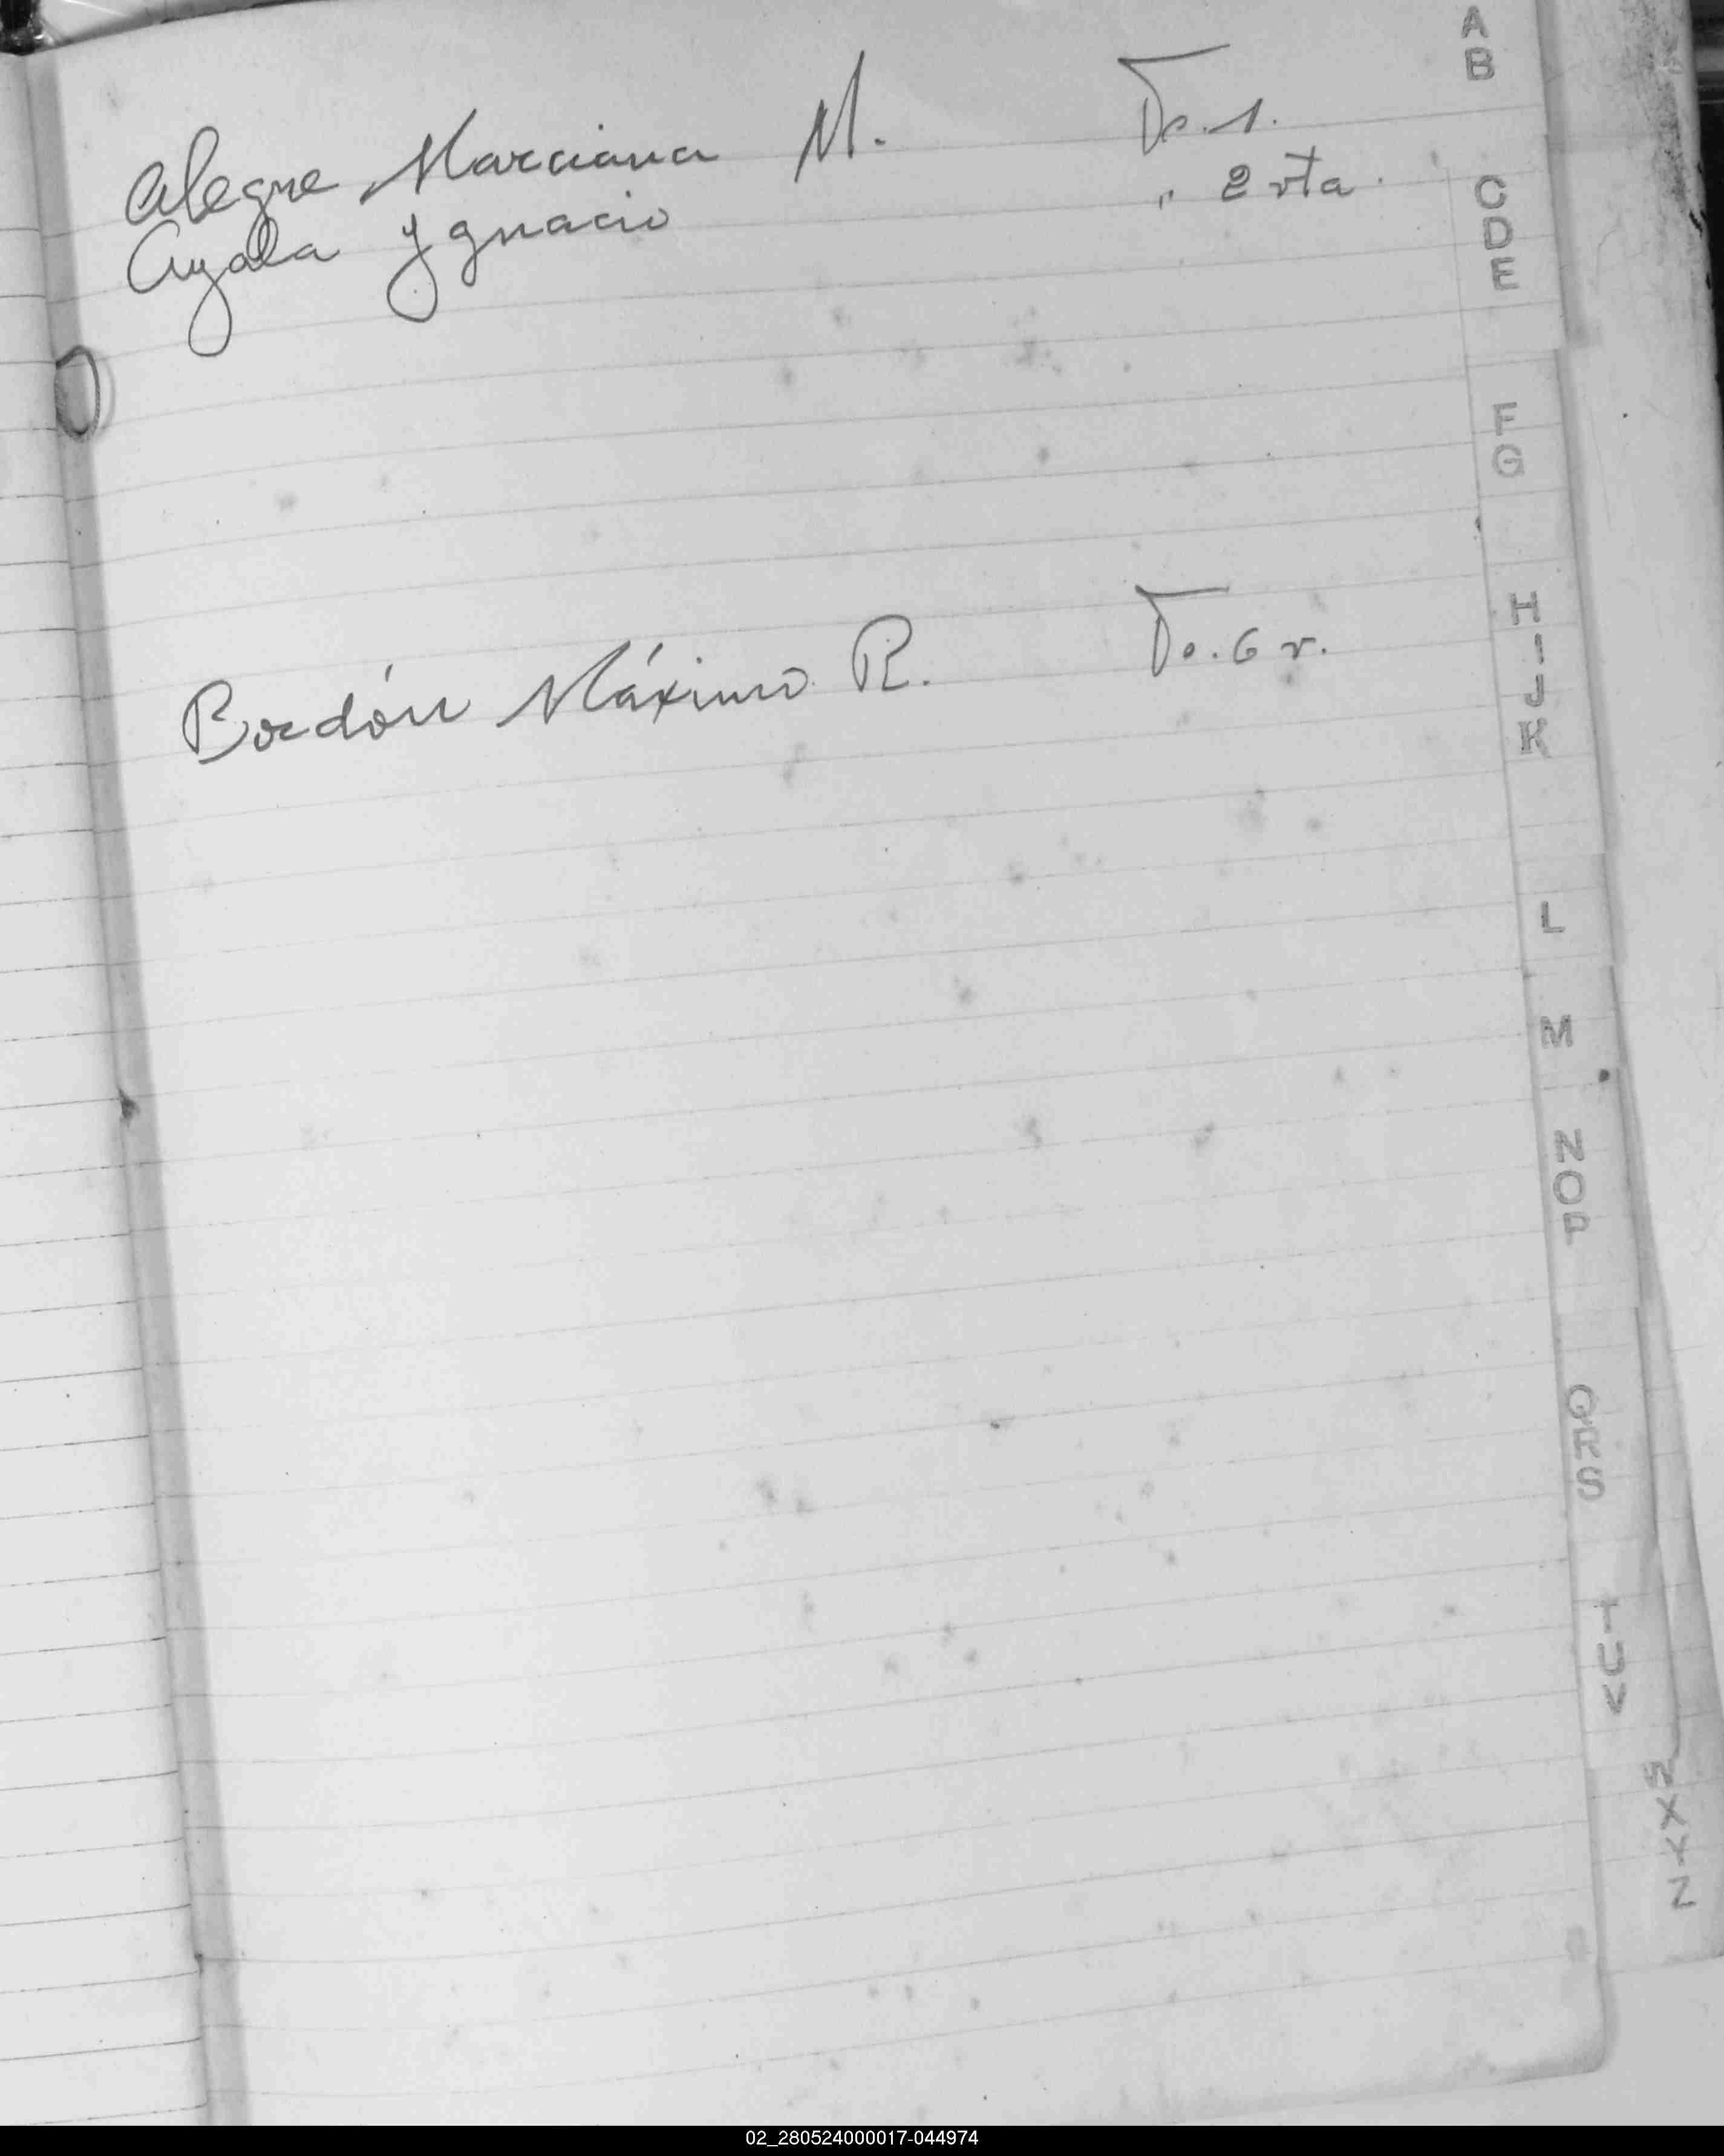 Alegre Marciana M. Fo. 1.
Ayala Ygnacio " 2 vta.
Bordón Máximo R. Fo. 6 v.
A
B
C
D
E
F
G
H
I
J
K
L
M
N
O
P
Q
R
S
T
U
V
W
X
Y
Z
02_280524000017-044974